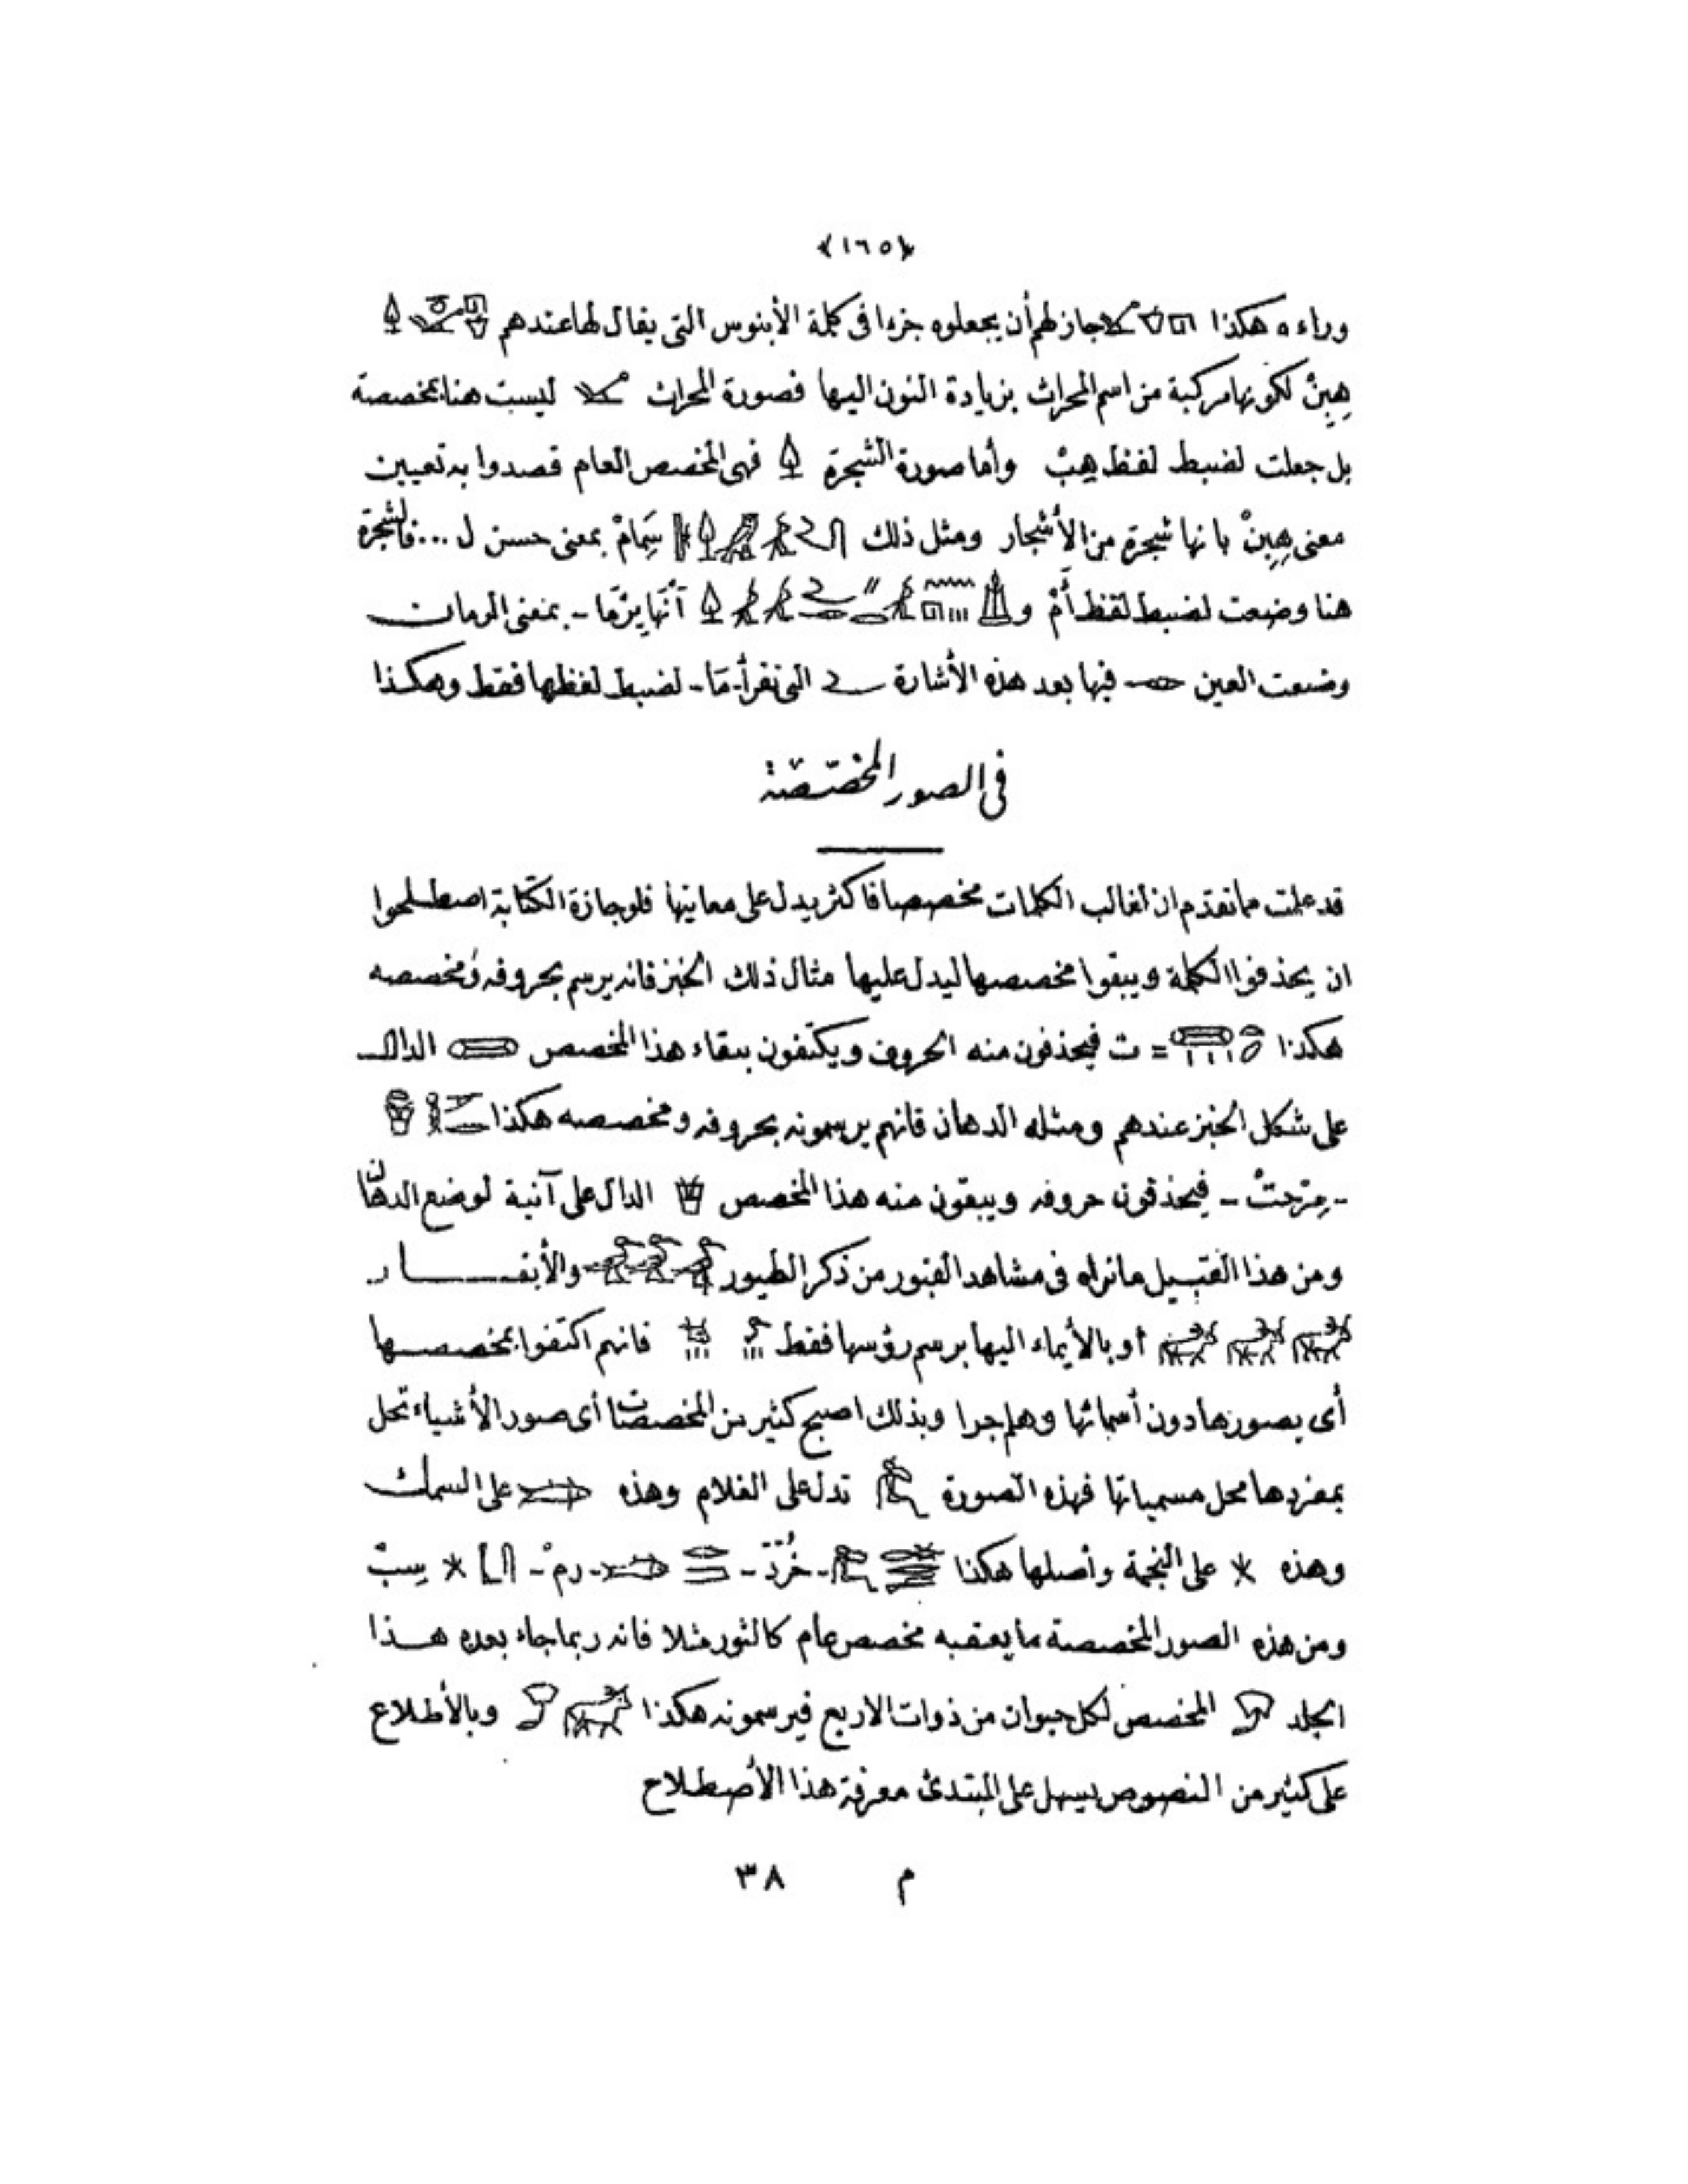 ﴿١٦٥﴾
وراءه هكذا جاز لهم أن يجعلوه جزءا فى كلمة الأبنوس التى يقال لها عندهم
هِبِنْ لكونها مركبة من اسم المحراث بزيادة النون اليها فصورة المحراث ليست هنا بمخصصة
بل جعلت لضبط لفظ هِبْ وأما صورة الشجرة فهى المخصص العام قصدوا به تعيين
معنى هِبِنْ بانها شجرة من الأشجار ومثل ذلك سَِمَامْ بمعنى حسن ل ... فالشجرة
هنا وضعت لضبط لفظ أَمْ و آنْهَا يِرْمَا - بمعنى الرمان
وضعت العين فيها بعد هذه الأشارة التى تقرأ - مَا - لضبط لفظها فقط وهكذا
فى الصور المخصّصة
قد علمت مما تقدّم ان لغالب الكلمات مخصصا فاكثر يدل على معانيها فلوجازة الكتابة اصطلحوا
ان يحذفوا الكلمة ويبقوا مخصصها ليدل عليها مثال ذلك الخبز فانه يرسم بحروفه ومخصصه
هكذا = ت فيحذفون منه الحروف ويكتفون ببقاء هذا المخصص الدال
على شكل الخبز عندهم ومثله الدهان فانهم يرسمونه بحروفه ومخصصه هكذا
- مِرْحِتْ - فيحذفون حروفه ويبقون منه هذا المخصص الدال على آنية لوضع الدهان
ومن هذا القبيل ما نراه فى مشاهد القبور من ذكر الطيور والأبقار
أو بالأيماء اليها برسم رؤسها فقط فانهم اكتفوا بمخصصها
أى بصورها دون أسمائها وهلم جرا وبذلك اصبح كثير من المخصصات أى صور الأشياء تحل
بمفردها محل مسمياتها فهذه الصورة تدل على الغلام وهذه على السمك
وهذه على النجمة وأصلها هكذا - خُرَدْ - - رِمْ - سِبْ
ومن هذه الصور المخصصة ما يعقبه مخصص عام كالثور مثلا فانه ربما جاء بعده هذا
الجلد المخصص لكل حيوان من ذوات الاربع فيرسمونه هكذا وبالأطلاع
على كثير من النصوص يسهل على المبتدئ معرفة هذا الأصطلاح
م ٣٨